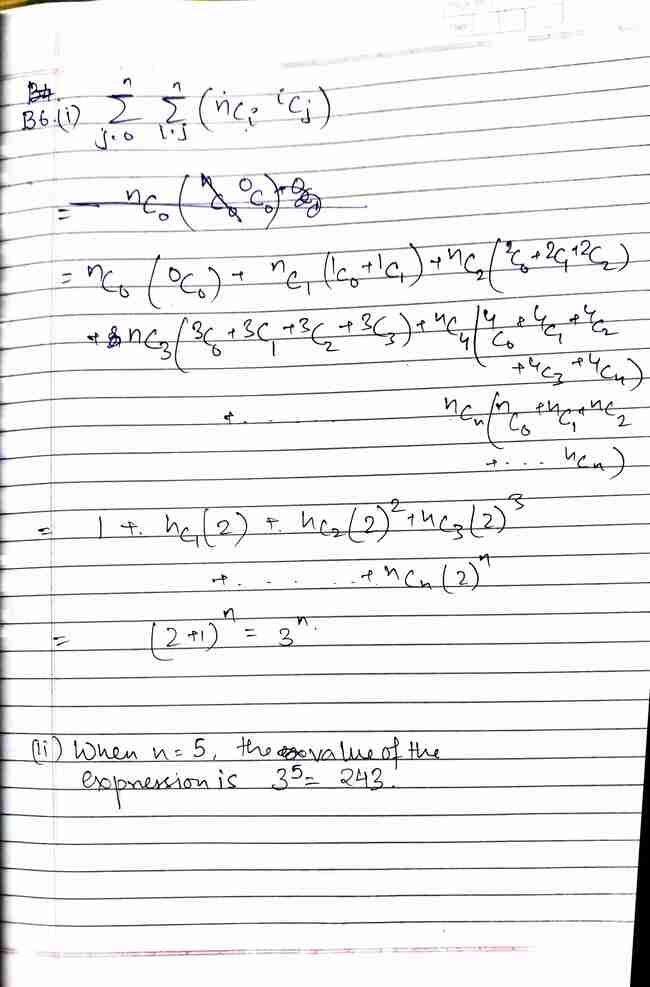 B6.(i) n∑j=0 n∑i=j (nCi · iCj)
= nC0 (0C0)
= nC0 (0C0) + nC1 (1C0+1C1) + nC2 (2C0+2C1+2C2)
+ nC3 (3C0+3C1+3C2+3C3) + nC4 (4C0+4C1+4C2
+4C3+4C4)
+ . . . . . . . nCn (nC0+nC1+nC2
+ . . . nCn)
= 1 + nC1(2) + nC2(2)²+nC3(2)³
+ . . . . . . . +nCn(2)ⁿ
= (2+1)ⁿ = 3ⁿ.
(ii) When n=5, the value of the
expression is 3⁵= 243.